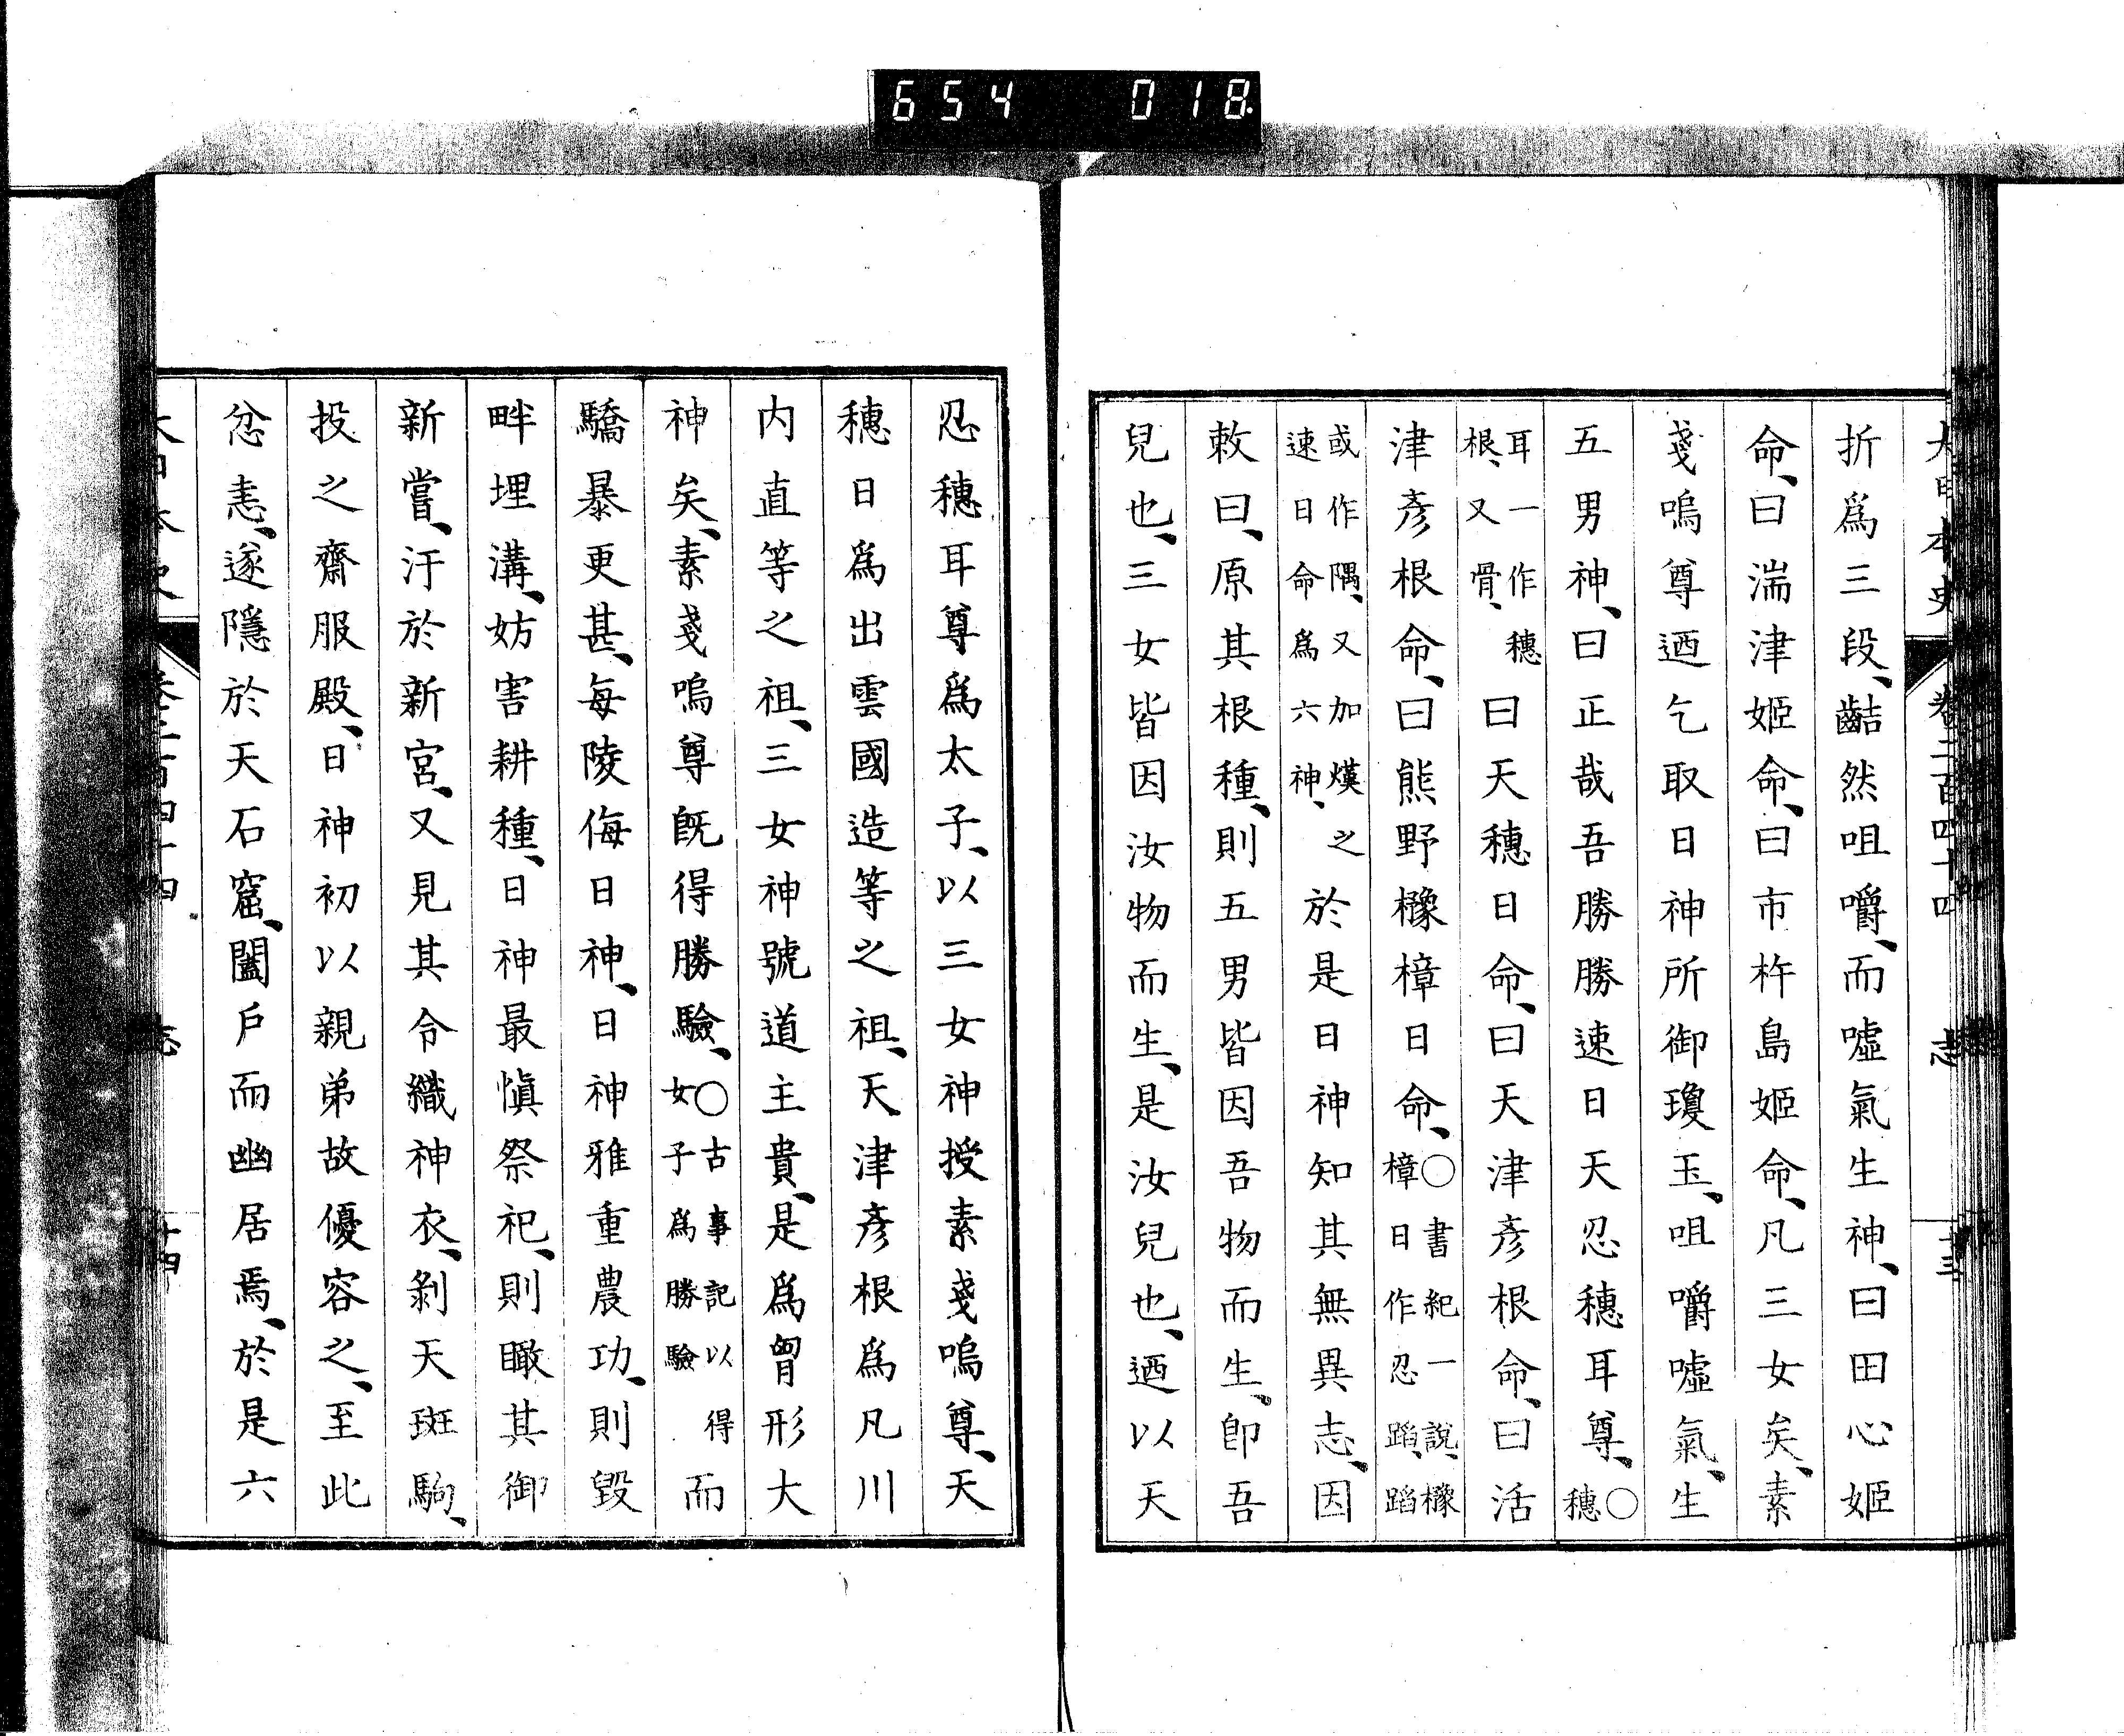 654 018.
大日本史 卷二百四十四 志 十三
折爲三段、齰然咀嚼、而噓氣生神、曰田心姬
命、曰湍津姬命、曰市杵島姬命、凡三女矣、素
戔嗚尊迺乞取日神所御瓊玉、咀嚼噓氣、生
五男神、曰正哉吾勝勝速日天忍穗耳尊、○穗
耳一作穗根、又骨、曰天穗日命、曰天津彥根命、曰活
津彥根命、曰熊野櫲樟日命、○書紀一說、櫲樟日作忍蹈、蹈
或作隅、又加熯之速日命爲六神、於是日神知其無異志、因
敕曰、原其根種、則五男皆因吾物而生、卽吾
兒也、三女皆因汝物而生、是汝兒也、迺以天
忍穗耳尊爲太子、以三女神授素戔嗚尊、天
穗日爲出雲國造等之祖、天津彥根爲凡川
內直等之祖、三女神號道主貴、是爲胷形大
神矣、素戔嗚尊旣得勝驗、○古事記以得女子爲勝驗而
驕暴更甚、每陵侮日神、日神雅重農功、則毀
畔埋溝、妨害耕種、日神最愼祭祀、則瞰其御
新嘗、汙於新宮、又見其令織神衣、剝天斑駒、
投之齋服殿、日神初以親弟故優容之、至此
忿恚、遂隱於天石窟、闔戶而幽居焉、於是六
大日本史 卷二百四十四 志 十四